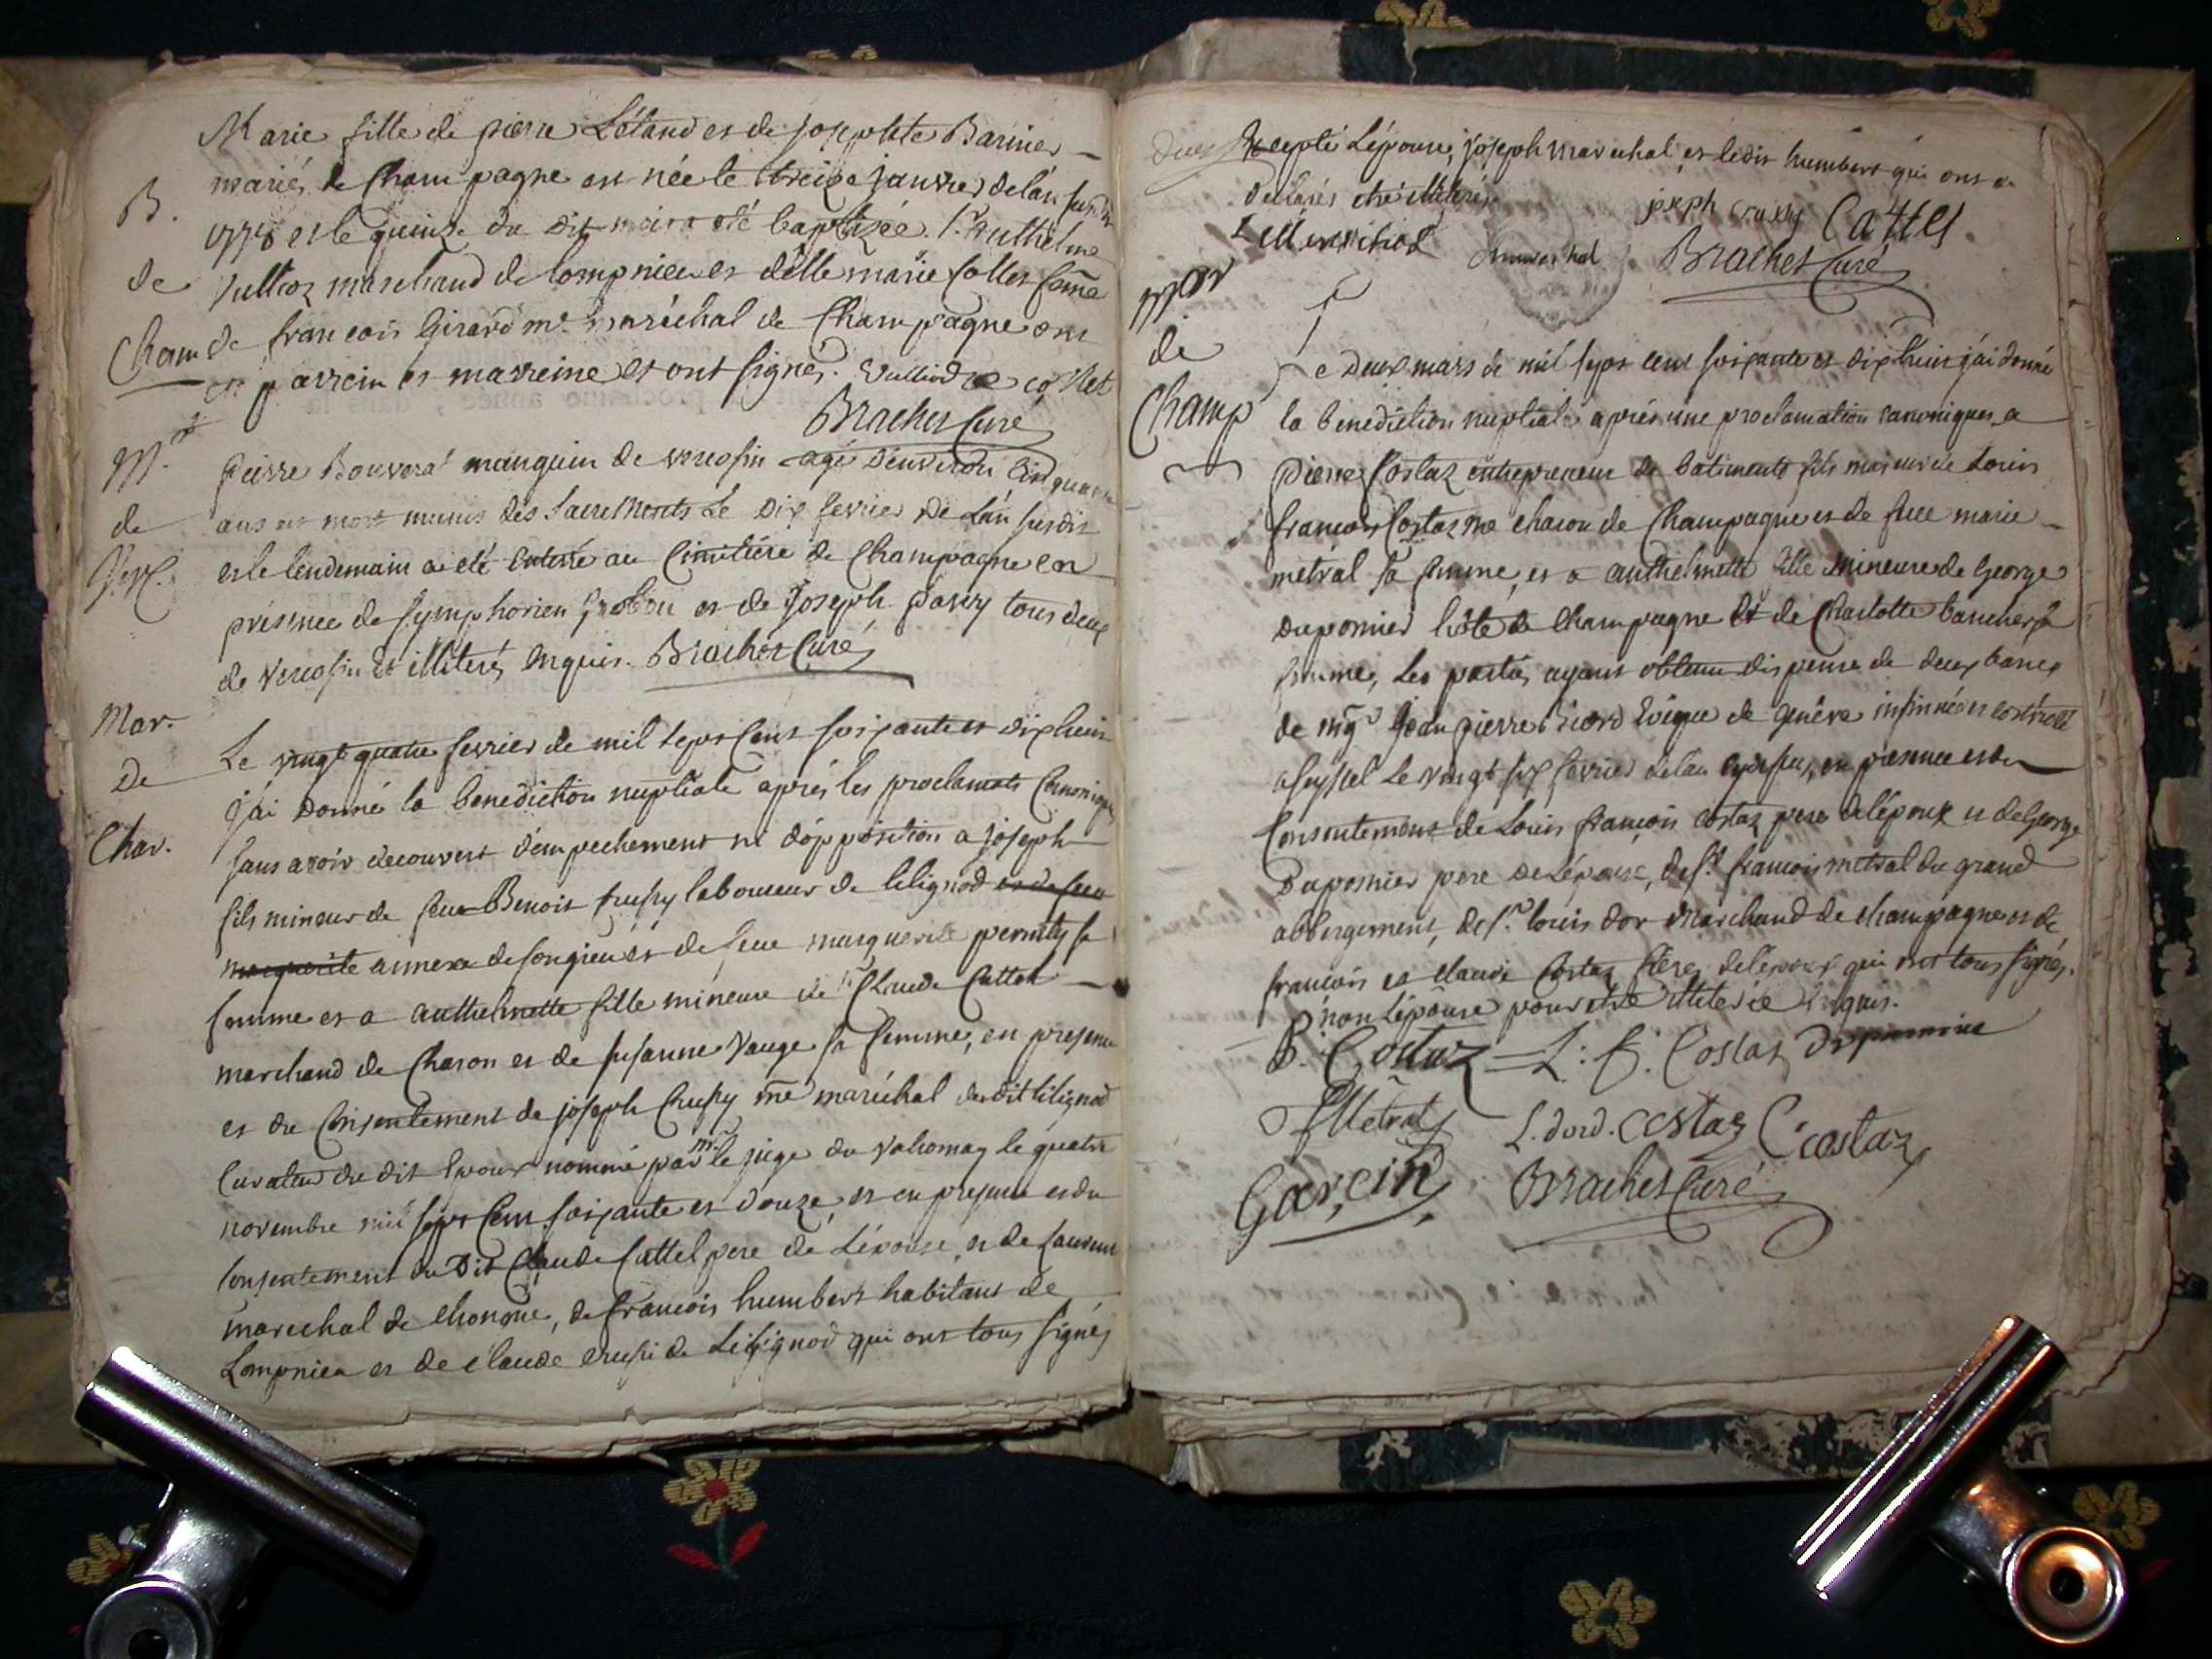 Marie fille de pierre Létand et de josephte Barinier
mariés de Champagne est née le treize janvier de lan susdit
1778 et le quinze du dit mois a été baptizée. Sr. Anthelme
Vullioz marchand de Lompnieu et dlle marie Collet feme
de francois Girard me. maréchal de Champagne ont
été parrein et marreine et ont signés. Vulliod co llet
Brachet Curé
B.
de
Cham
Pierre Bouvera manguin de vercosin agé d'environ Cinquante
ans est mort munis des Sacrements Le Dix fevrier de L'an susdit
et le lendemain a eté enterré au Cimitiére de Champagne en
présence de symphorien et de Joseph pavy tous deux
de vercosin et illiterés enquis. Brachet Curé
M.
de
Verc.
Mar.
de
Char.
Le vingt quatre fevrier de mil sept Cent soixante et dixhuit
j'ai donné la benediction nuptiale aprés les proclamats Canoniques
sans avoir decouvert d'empechement ni d'opposition a joseph
fils mineur de feu Benoit crussy laboureur de lilignod et de feue
marguerite annexe de songieu et de feue marguerite pernety sa
femme et a anthelmette fille mineure de Sr Claude Cattel
marchand de Charon et de susanne Vauge sa femme, en presence
et du Consentement de joseph Crussy me maréchal du dit lilignod
Curateur du dit Epoux nommé par mr. le juge du valromay le quatre
novembre mil sept Cent soixante et douze, et en presence et du
Consentement du Dit Claude Cattel pere de L'épouse, et de Laurent
marechal de chongne, de francois humbert habitant de
Lompnieu et de claude crussi de Lilignod qui ont tous signés
Excepté L'épouse, joseph marechal et ledit humbert qui ont
declarés etre illiterés
joseph crussy Cattel
Brachet Curé
Mar
de
Champ
Le deux mars de mil sept cent soixante et dixhuit j'ai donné
la benediction nuptiale aprés une proclamation canoniques a
Pierre Costaz entrepreneur de batiments fils majeur de Louis
francois Costaz me charon de Champagne et de feue marie
metral sa femme, et a anthelmette fille mineure de George
dupornier hôte de Champagne et de Charlotte bancher sa
femme, Les parties ayant obtenu dispense de deux bancs
de mgr jean pierre Biord Evêque de Genêve insinuée et controllé
a seyssel Le vingt six fevrier de lan cydessus, en presence et du
Consentement de Louis françois costaz pere de l'époux et de George
Dupornier pere de L'épouse, de sr. francois metral du grand
abbergement, de sr. louis dor marchand de champagne et de
francois et claude Costaz freres de l'epoux qui ont tous signés.
non L'épouse pour etre illiterée Enquis.
P. Costaz = L: f. Costaz Dupornier
f Metral L. dord. costaz C. costaz
Garcin Brachet Curé